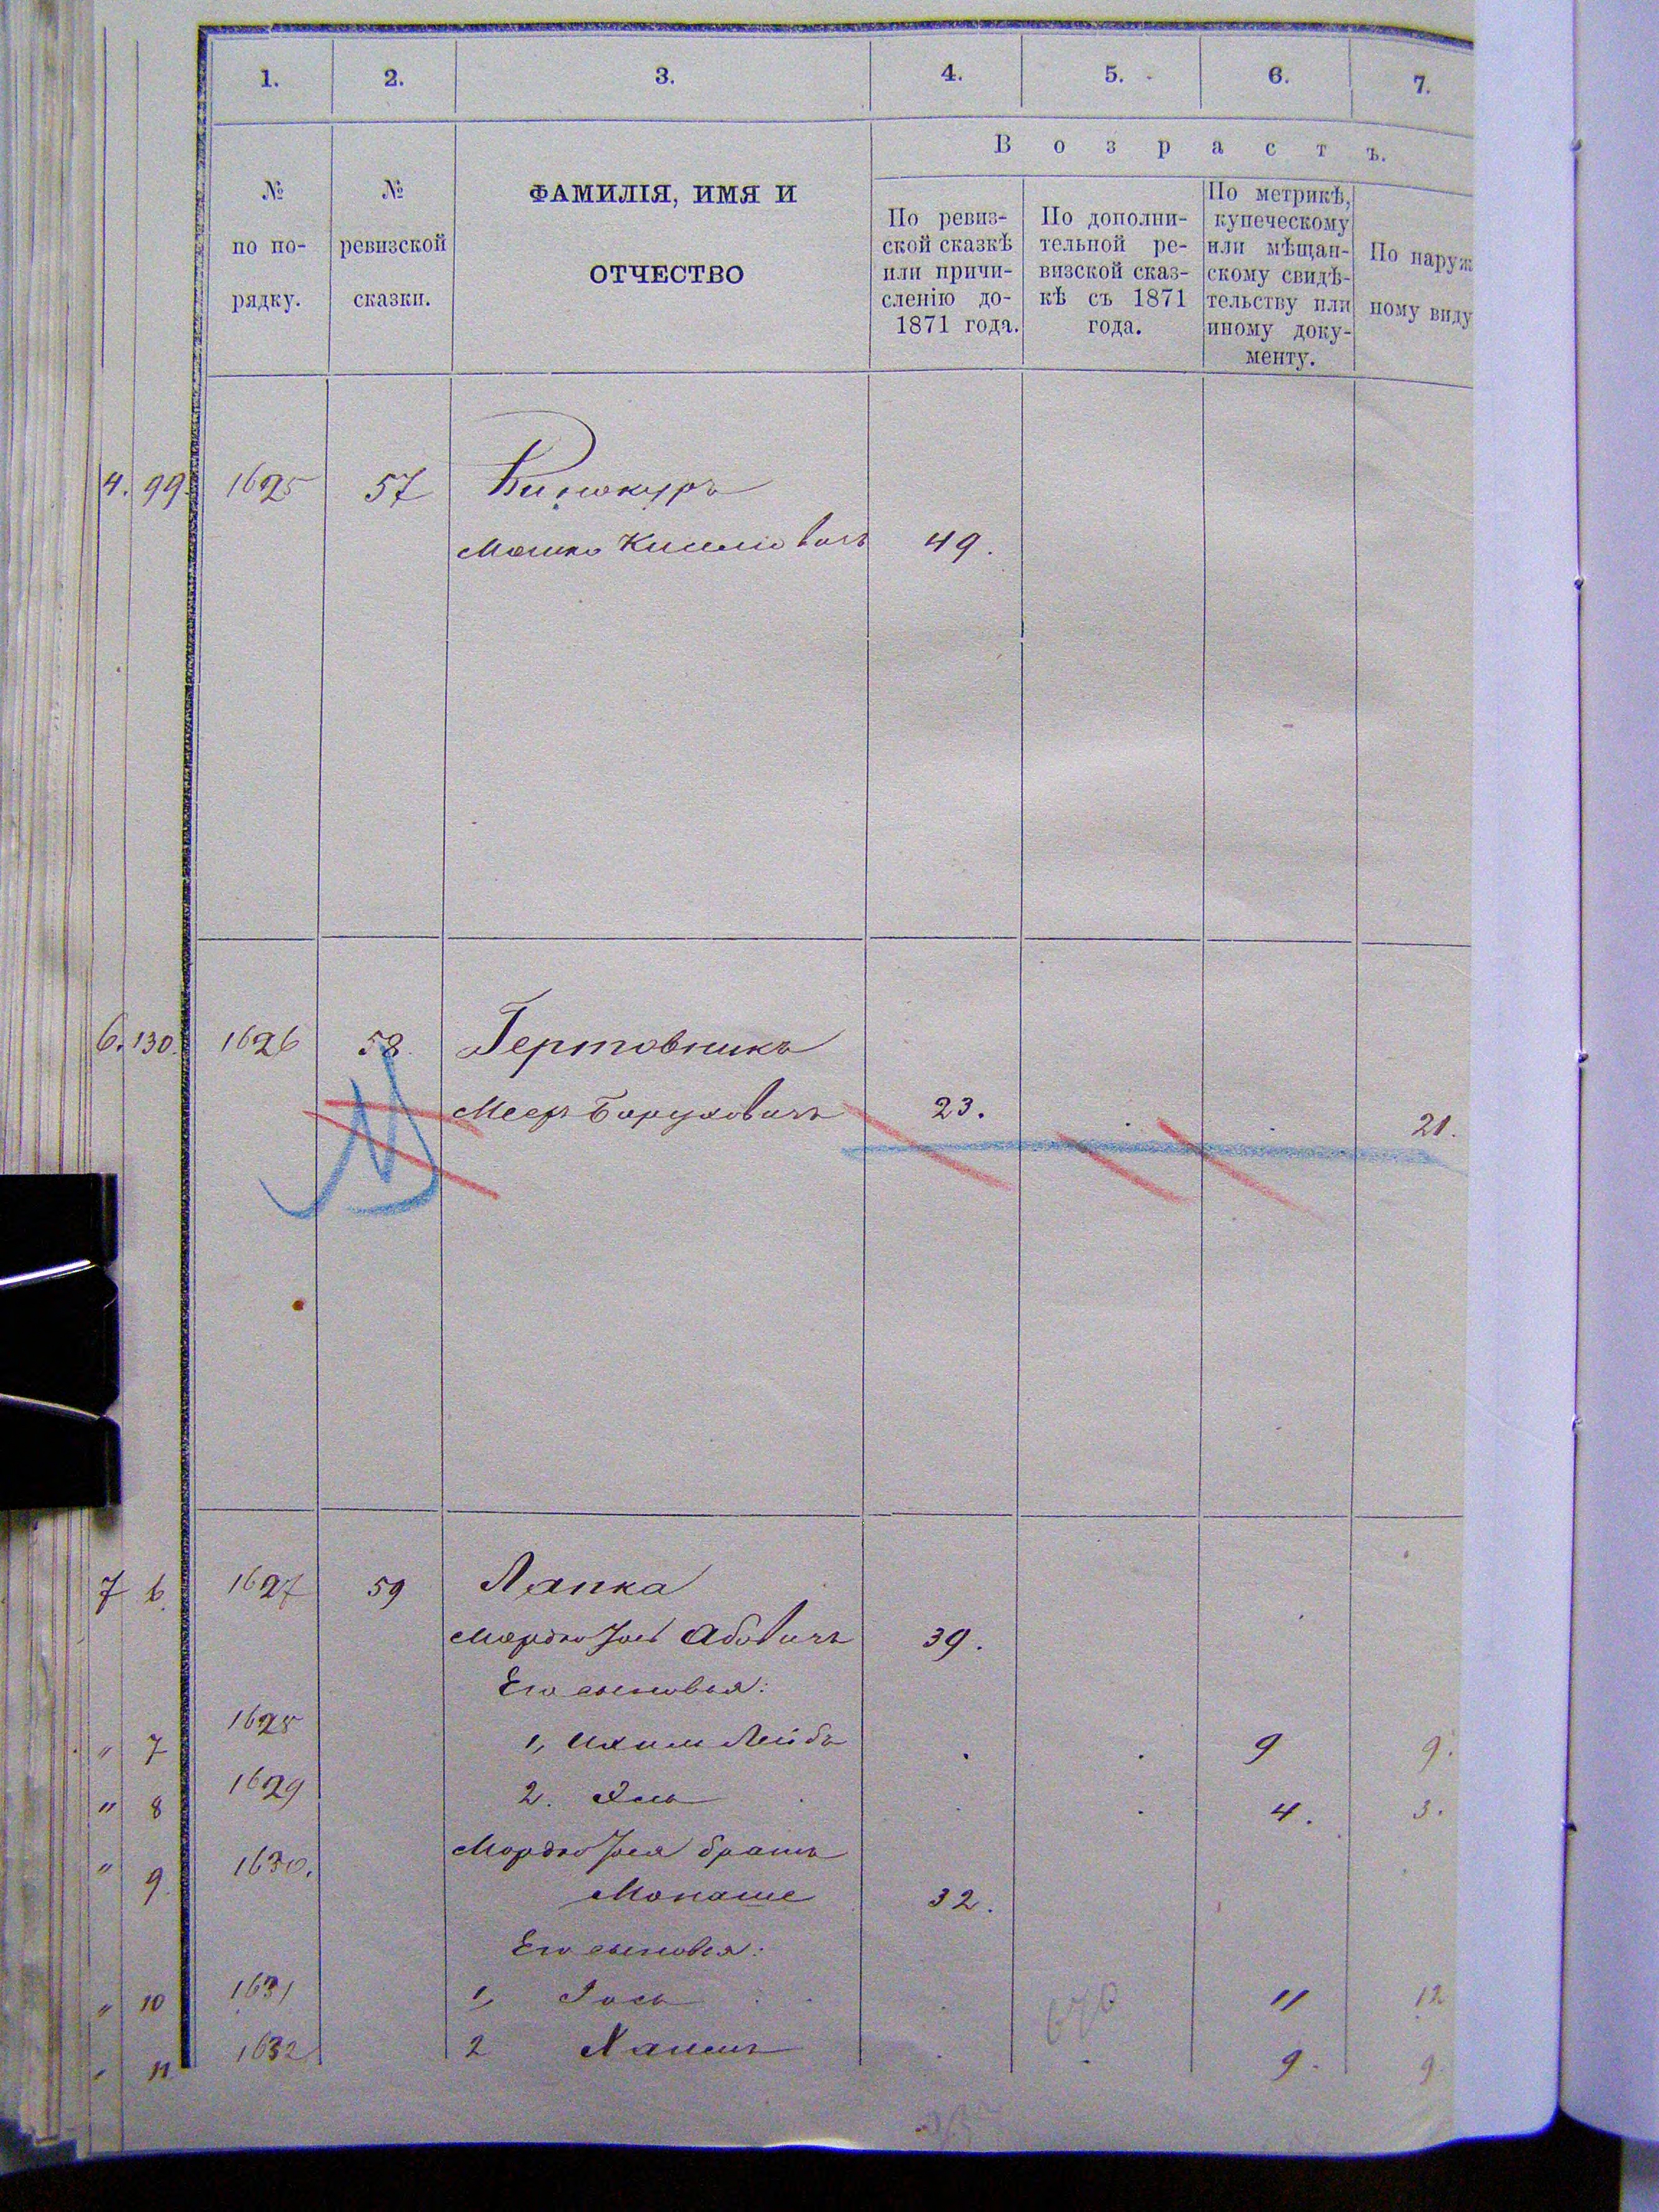 1. 2. 3. 4. 5. 6. 7.
В о з р а с т ъ.
№ по по- рядку.
№ ревизской сказки.
ФАМИЛІЯ, ИМЯ И
ОТЧЕСТВО
По ревиз-
ской сказкѣ
или причи-
сленію до-
1871 года.
По дополни-
тельной ре-
визской сказ-
кѣ съ 1871
года.
По метрикѣ,
купеческому
или мѣщан-
скому свидѣ-
тельству или
иному доку-
менту.
По наруж
ному виду
4. 99. 1625 57 Винокуръ
Мошко 49.
6. 130. 1626 58. Гертовникъ
Меер Боруховичъ 23. 21.
7 6. 1627 59 Лапка
Мордко Іось Абовичъ 39.
Его сыновья:
" 7 1628 1, Лейба 9 9.
" 8 1629 2. 4. 3.
" 9. 1630. Мордко Іося братъ
Монаше 32.
Его сыновья:
" 10 1631 1, Іось 11 12
" 11. 1632 2 9. 9.